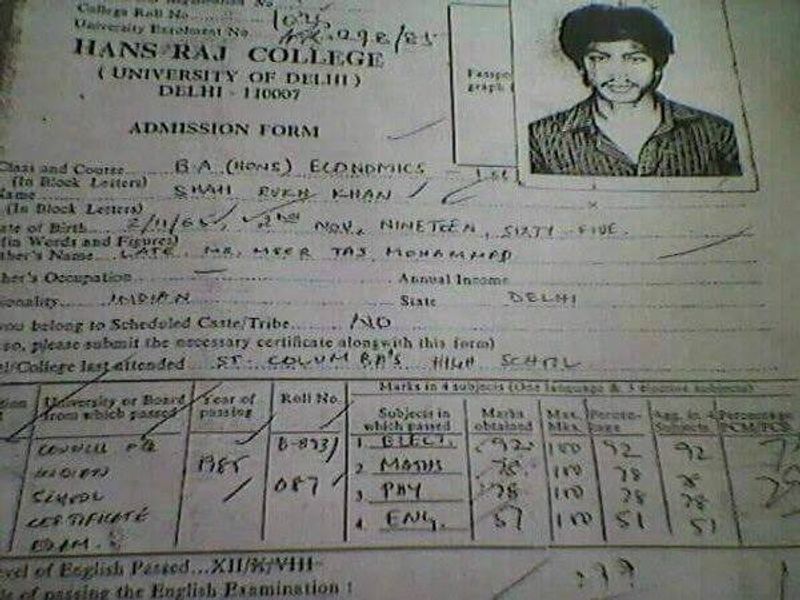 College Roll No 1025
University Enrolment No. 298/85
HANS RAJ COLLEGE
( UNIVERSITY OF DELHI )
DELHI - 110007
Passpo
graph
ADMISSION FORM
Class and Course B.A (HONS) ECONOMICS
(In Block Letters)
Name SHAH RUKH KHAN
(In Block Letters)
ate of Birth 2/11/65, 2ND NOV, NINETEEN, SIXTY FIVE.
(in Words and Figures)
ther's Name LATE. MR. MEER TAJ MOHAMMAD
her's Occupation Annual Income
ionality INDIAN State DELHI
you belong to Scheduled Caste/Tribe NO
so, please submit the necessary certificate alongwith this form)
l/College last attended ST. COLUMBA'S HIGH SCHOOL
University or Board from which passed Year of passing Roll No. Marks in 4 subjects (One language & 3 elective subjects)
Subjects in which passed Marks obtained Max. Mks. Percen- tage Agg. in 4 Subjects Percentage PCM/PCB
COUNCIL FOR B-893/ 1. ELECT. 92 100 92 92
INDIAN 1985 2. MATHS 78 100 78 78
SCHOOL 087 3. PHY 78 100 78 78
CERTIFICATE 4. ENG. 51 100 51 51
EXAM.
evel of English Passed...XII/X/VIII
of passing the English Examination :